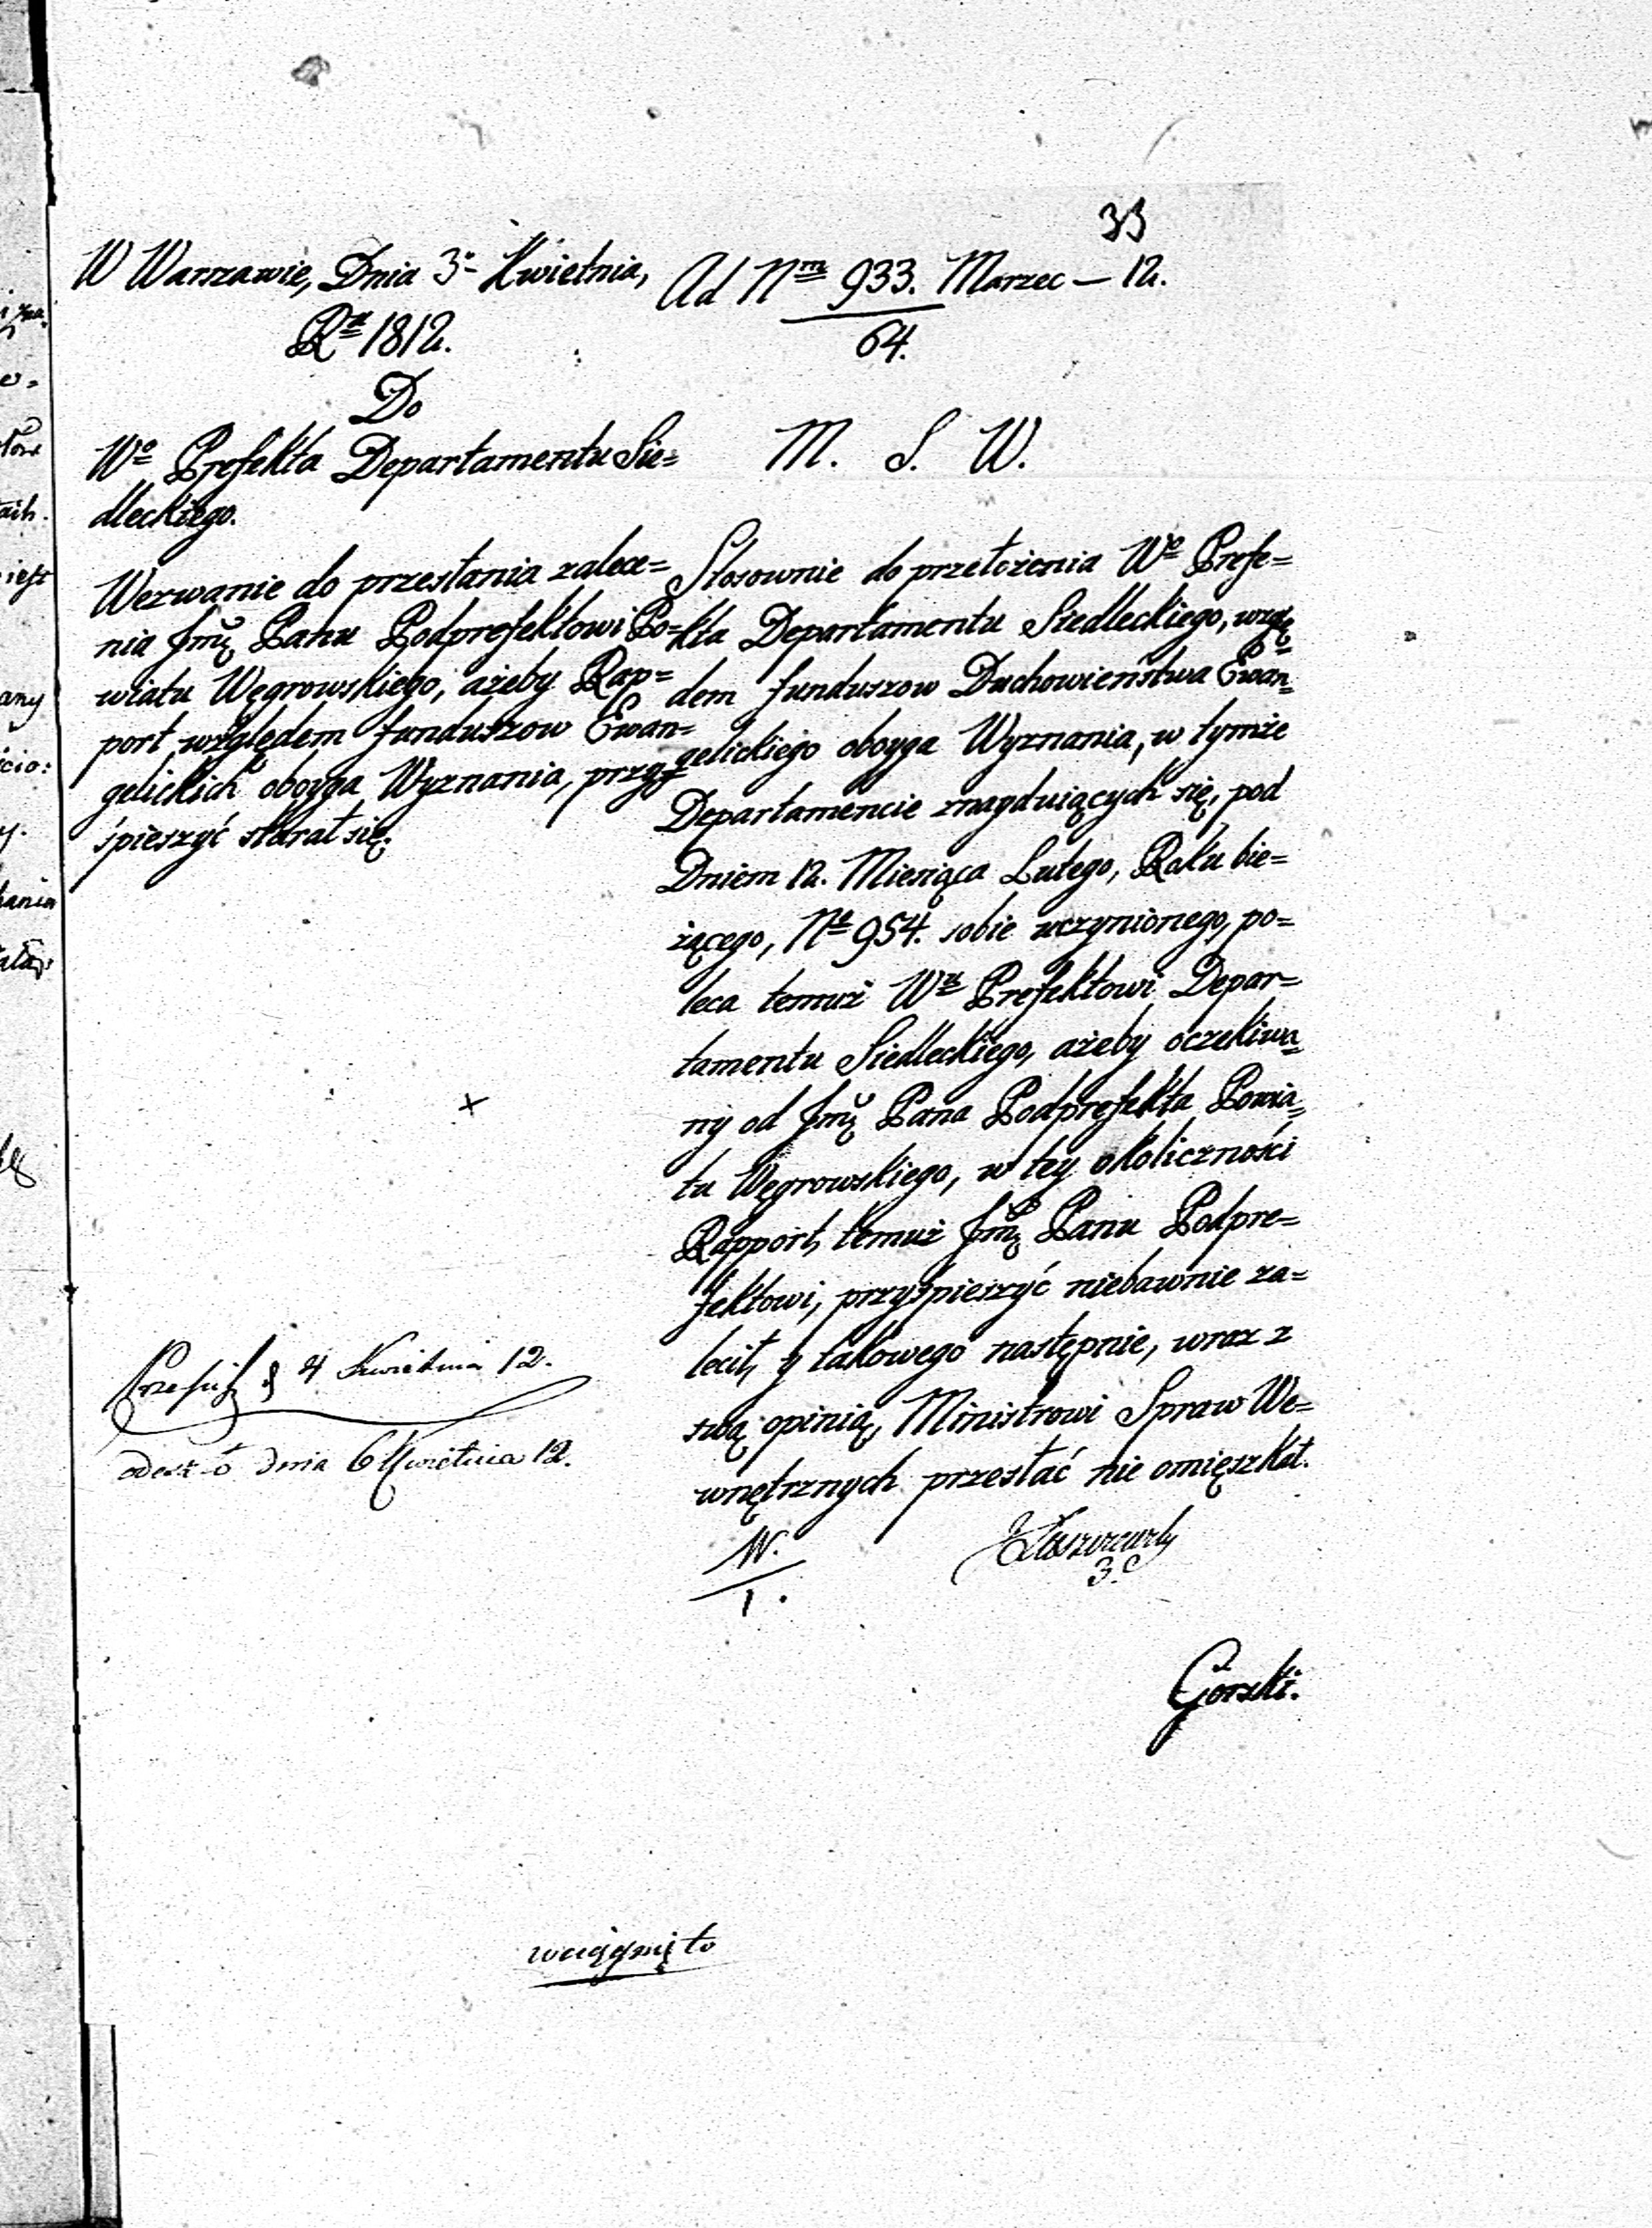 33
W Warszawie, Dnia 3º Kwietnia,
Rº 1812.
Ad Nm 933. Marzec — 12.
64.
Do
Wº Prefekta Departamentu Sie=
dleckiego.
Wezwanie do przesłania zalece=
nia Jmę Panu Podprefektowi Po=
wiatu Węgrowskiego, ażeby Rap=
port względem funduszow Ewan=
gelickich oboyga Wyznania, przy=
śpieszyć starał się.
M. S. W.
Stosownie do przełożenia Wº Prefe=
kta Departamentu Siedleckiego, wzglę=
dem funduszow Duchowieństwa Ewan=
gelickiego oboyga Wyznania, w tymże
Departamencie znayduiących się, pod
Dniem 12. Miesiąca Lutego, Roku bie=
żącego, Nº 954. sobie uczynionego, po=
leca temuż Wu Prefektowi Depar=
tamentu Siedleckiego, ażeby oczekiwa=
ny od Jmę Pana Podprefekta Powia=
tu Węgrowskiego, w tey okoliczności
Rapport, temuż Jmę Panu Podpre=
fektowi, przyśpieszyć niebawnie za=
lecił, y takowego następnie, wraz z
swą opinią, Ministrowi Spraw We=
wnętrznych przesłać nie omięszkał.
4 Kwietnia 12.
dnia 6 Kwietnia 12.
W.
1.
3.
Górski.
wciągnięto